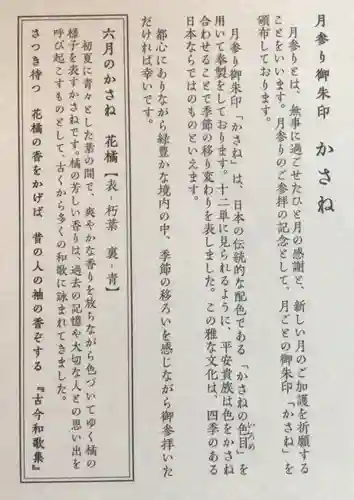 月参り御朱印 かさね
月参りとは、無事に過ごせたひと月の感謝と、新しい月のご加護を祈願する
ことをいいます。月参りのご参拝の記念として、月ごとの御朱印「かさね」を
頒布しております。
月参り御朱印「かさね」は、日本の伝統的な配色である「かさねの色目」を
いろめ
用いて奉製をしております。十二単に見られるように、平安貴族は色をかさね
合わせることで季節の移り変わりを表しました。この雅な文化は、四季のある
日本ならではのものといえます。
都心にありながら緑豊かな境内の中、季節の移ろいを感じながら御参拝いた
だければ幸いです。
六月のかさね 花橘【表-朽葉 裏-青】
初夏に青々とした葉の間で、爽やかな香りを放ちながら色づいてゆく橘の
様子を表すかさねです。橘の芳しい香りは、過去の記憶や大切な人との思い出を
呼び起こすものとして、古くから多くの和歌に詠まれてきました。
さつき待つ 花橘の香をかげば 昔の人の袖の香ぞする 『古今和歌集』